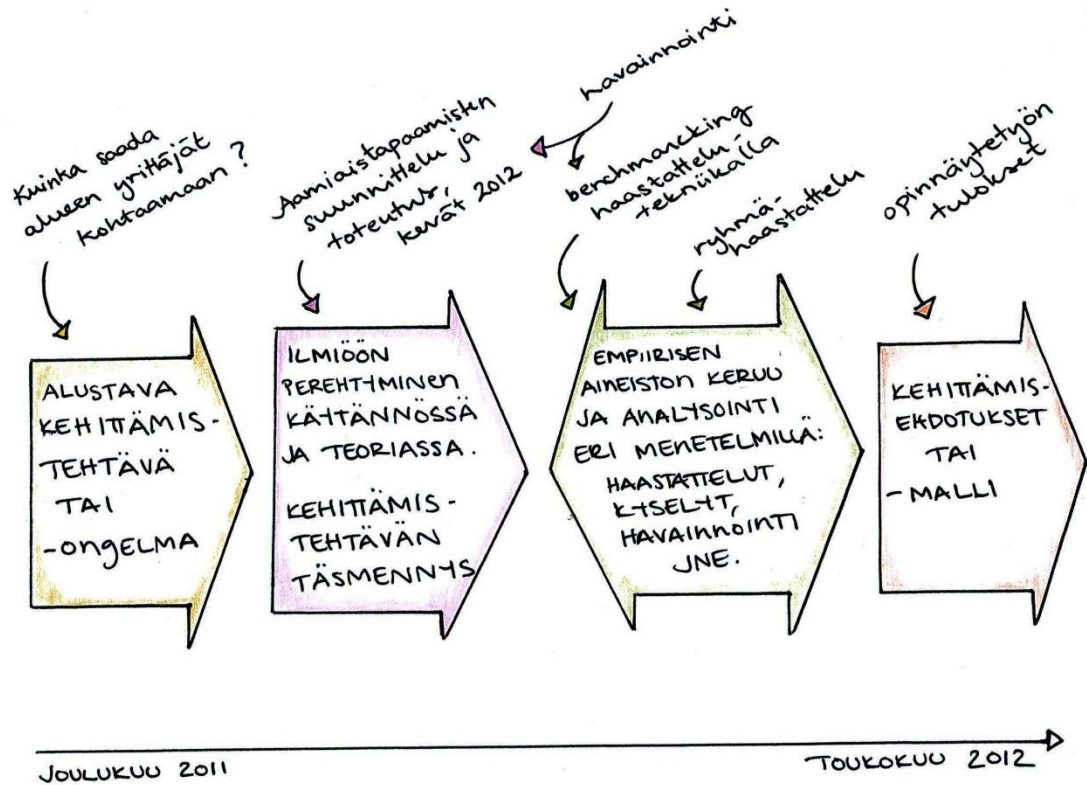 Kuinka saada
alueen yrittäjät
kohtaamaan?
Aamiaistapaamisten
suunnittelu ja
toteutus,
kevät 2012
havainnointi
benchmancking
haastattelu-
tekniikalla
ryhmä-
haastattelu
opinnäytetyön
tulokset
ALUSTAVA
KEHITTÄMIS-
TEHTÄVÄ
TAI
-ONGELMA
ILMIÖÖN
PEREHTYMINEN
KÄYTÄNNÖSSÄ
JA TEORIASSA.
KEHITTÄMIS-
TEHTÄVÄN
TÄSMENNYS
EMPIIRISEN
AINEISTON KERUU
JA ANALYSOINTI
ERI MENETELMILLÄ:
HAASTATTELUT,
KYSELYT,
HAVAINNOINTI
JNE.
KEHITTÄMIS-
EHDOTUKSET
TAI
-MALLI
JOULUKUU 2011
TOUKOKUU 2012